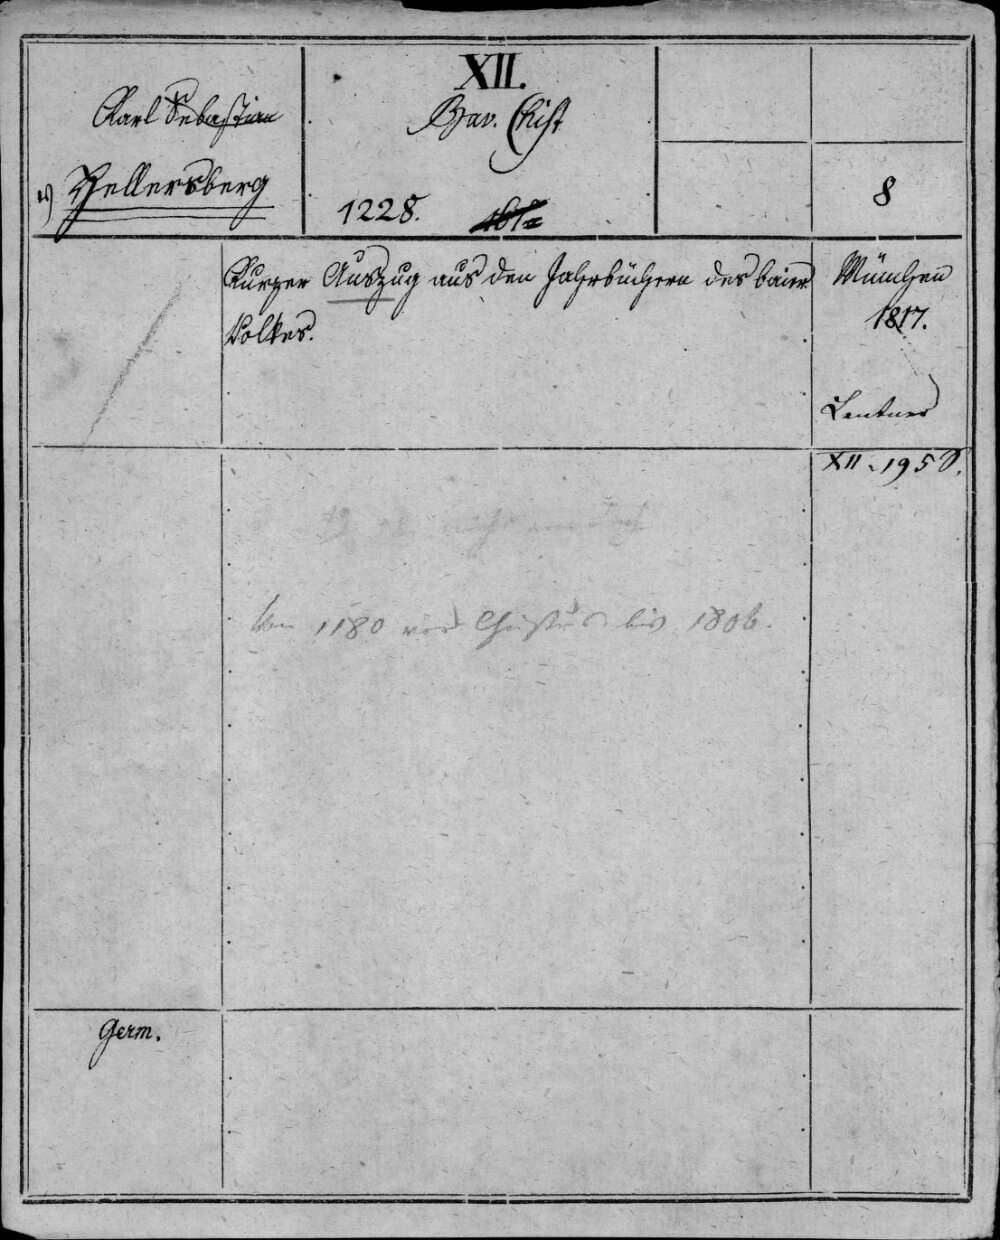 XII.
Karl Sebastian
Bav. Hist
Hellersberg
8
1228.
Kurzer Auszug aus den Jahrbüchern des baier
Volkes.
München
1817.
Lentner
XII. 195 S.
Von 1180 vor Christus bis 1806.
Germ.